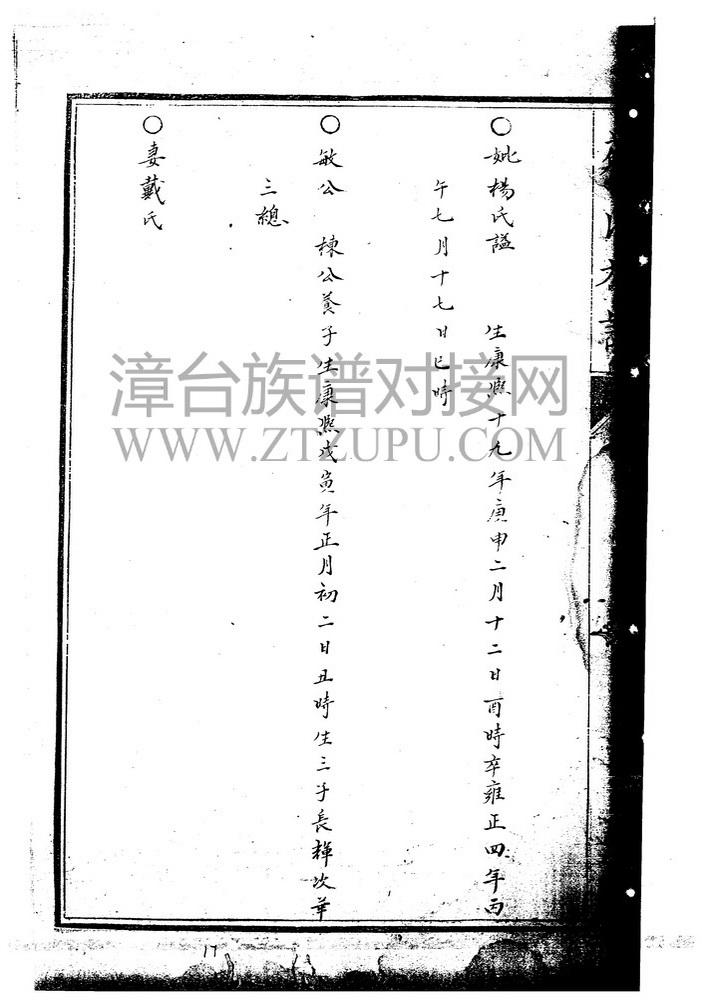 ○妣楊氏謚　生康熙十九年庚申二月十二日酉時卒雍正四年丙
午七月十七日巳時
○敏公　棟公養子生康熙戊寅年正月初二日丑時生三子長輝次華
三總
○妻戴氏
漳台族谱对接网
WWW.ZTZUPU.COM
17